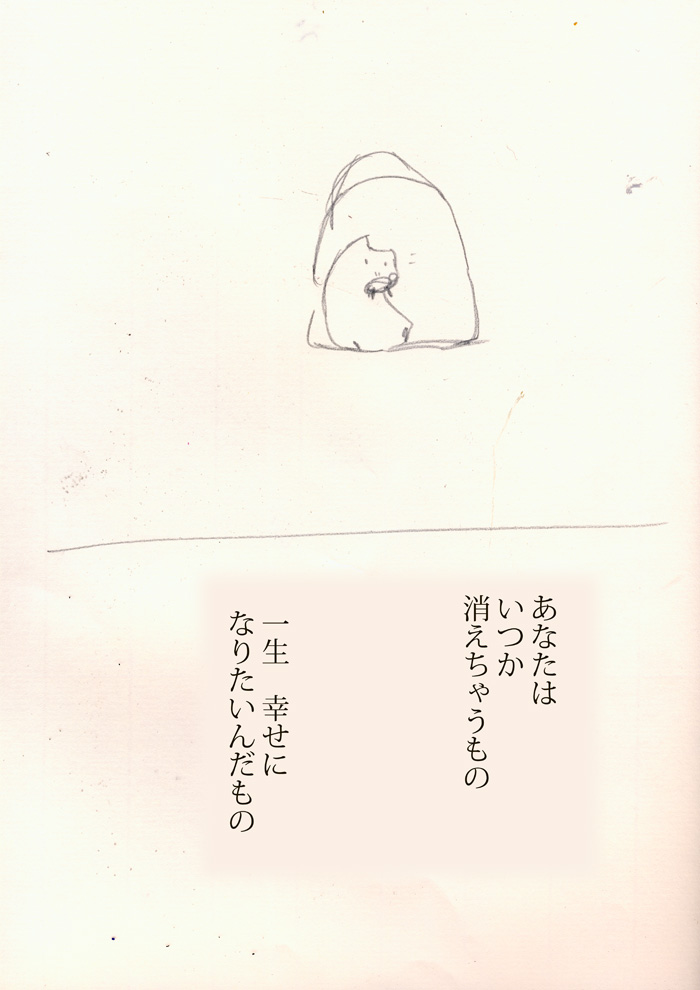 あなたは
いつか
消えちゃうもの
一生　幸せに
なりたいんだもの